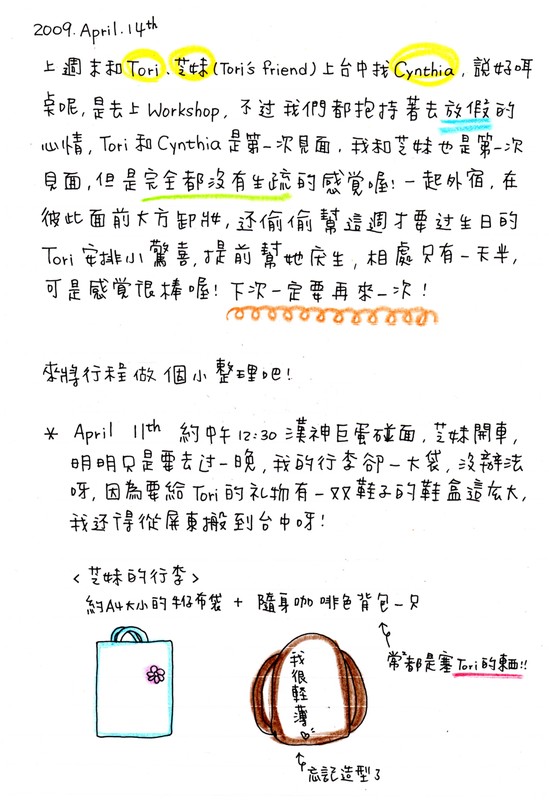 2009. April. 14th
上週末和Tori、芝妹(Tori's friend)上台中找Cynthia, 說好啊
桌呢, 是去上Workshop, 不过我們都抱持著去放假的
心情, Tori和Cynthia是第一次見面, 我和芝妹也是第一次
見面, 但是完全都沒有生疏的感覚喔! 一起外宿, 在
彼此面前大方卸妝, 还偷偷幫這週才要过生日的
Tori安排小驚喜, 提前幫她庆生, 相處只有一天半,
可是感覚很棒喔! 下次一定要再來一次!
來將行程做個小整理吧!
* April 11th 約中午12:30漢神巨蛋碰面, 芝妹開車,
明明只是要去过一晚, 我的行李卻一大袋, 沒辦法
呀, 因為要給Tori的礼物有一双鞋子的鞋盒這広大,
我还得從屏東搬到台中呀!
<芝妹的行李>
約A4大小的牛仔布袋 + 隨身咖啡色背包一只
常常都是塞Tori的東西!!
我很輕薄
忘記造型了